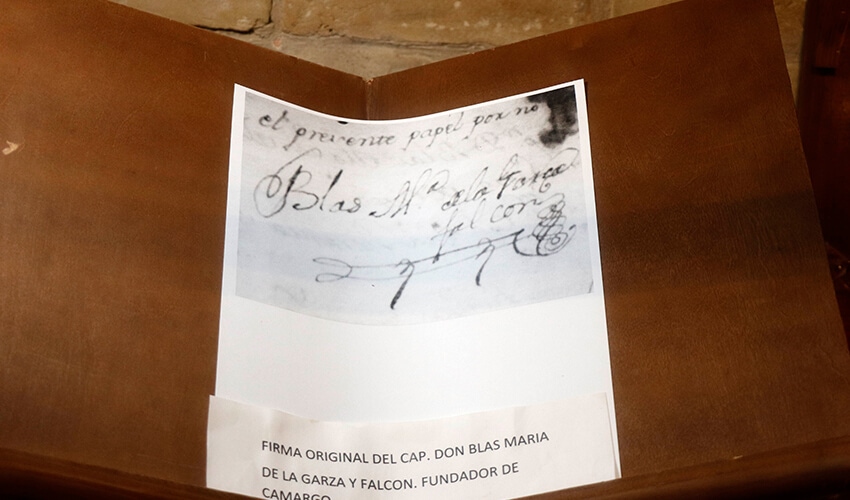 el prevente papel por no
Blas M.ª de la Garza
falcon
FIRMA ORIGINAL DEL CAP. DON BLAS MARIA
DE LA GARZA Y FALCON. FUNDADOR DE
CAMARGO